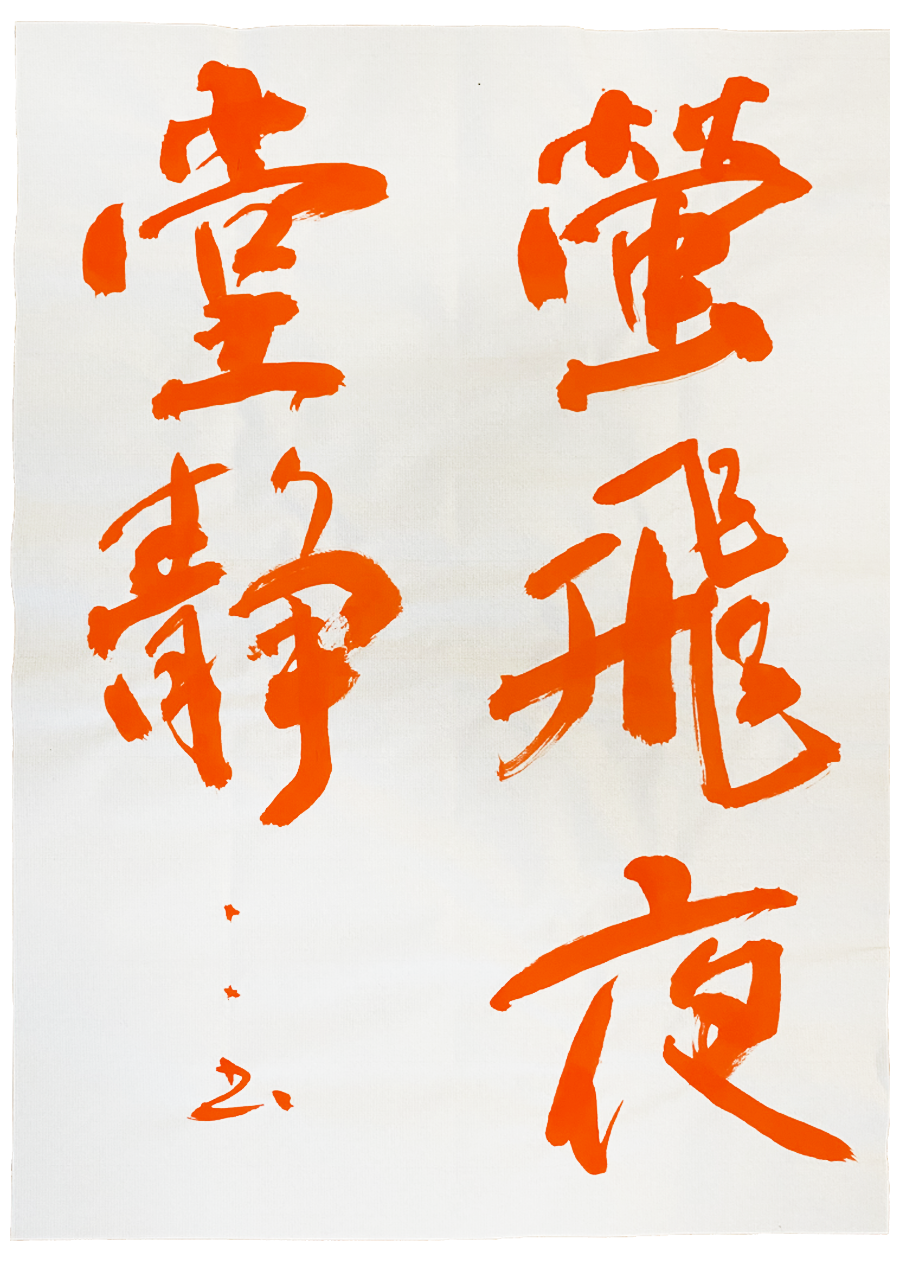 螢飛夜
堂靜